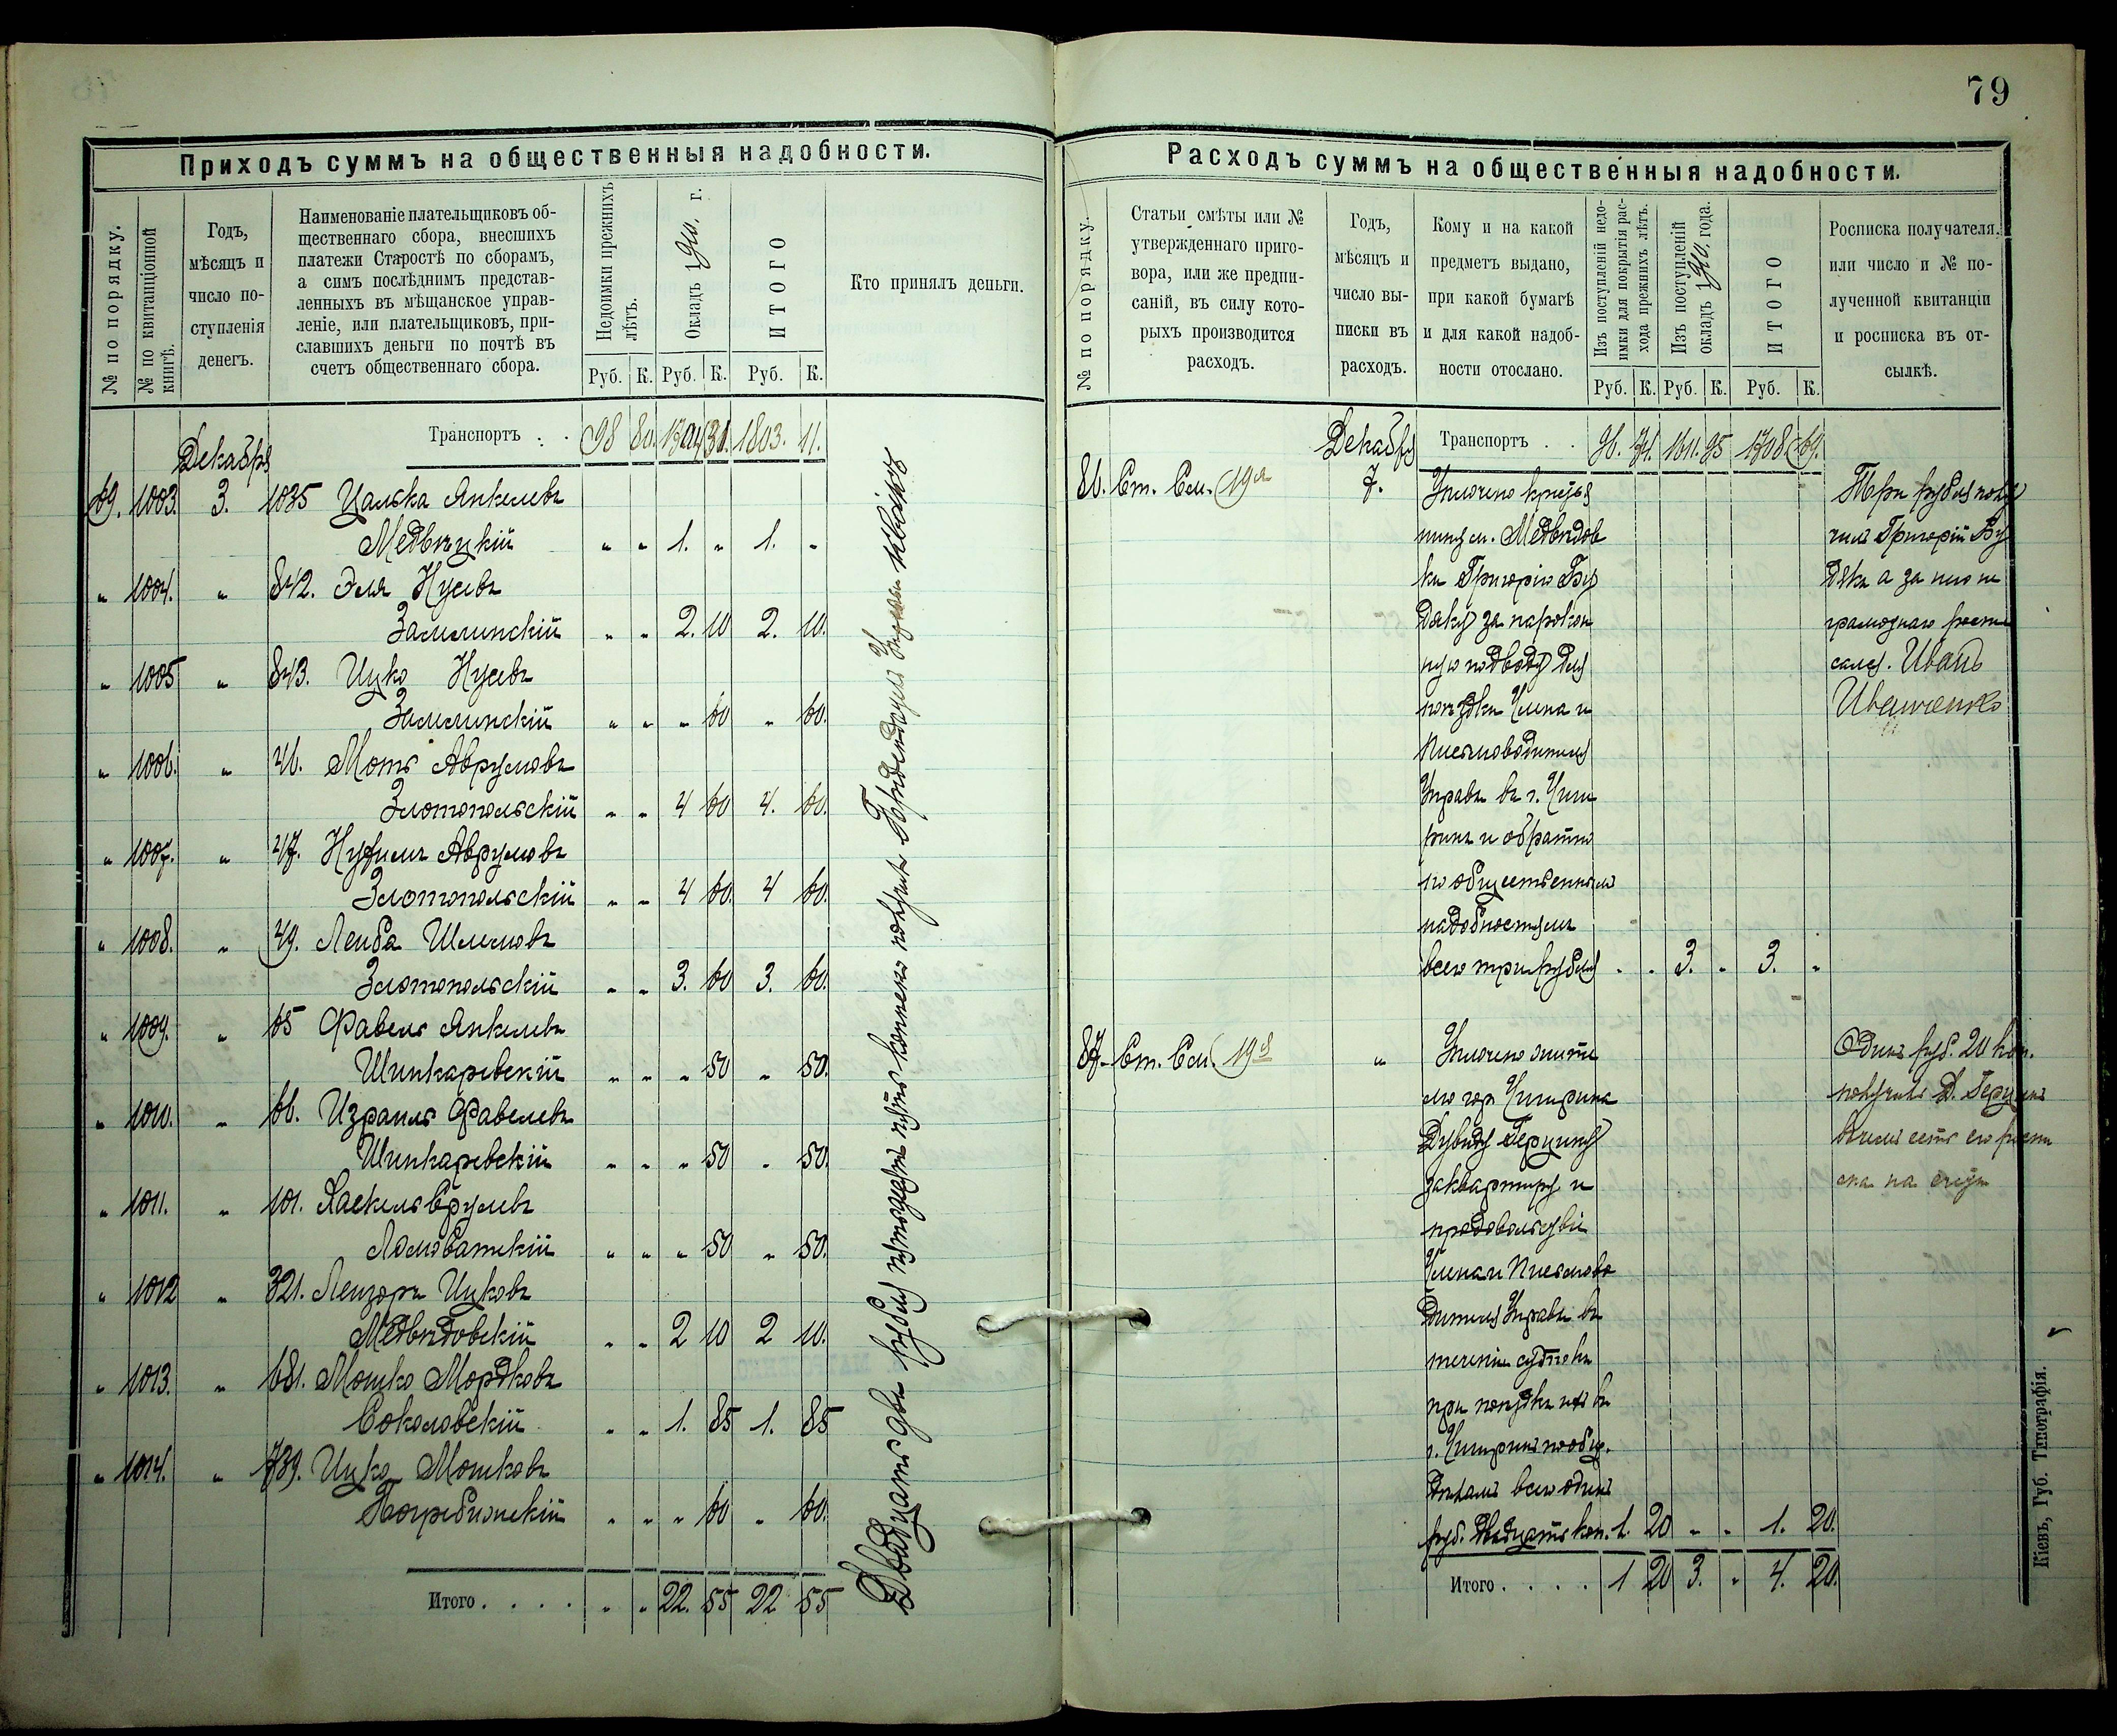 79
Приходъ суммъ на общественныя надобности.
№ по порядку.
№ по квитанціонной книгѣ.
Годъ,
мѣсяцъ и
число по-
ступленія
денегъ.
Наименованіе плательщиковъ об-
щественнаго сбора, внесшихъ
платежи Старостѣ по сборамъ,
а симъ послѣднимъ представ-
ленныхъ въ мѣщанское управ-
леніе, или плательщиковъ, при-
славшихъ деньги по почтѣ въ
счетъ общественнаго сбора.
Недоимки прежнихъ лѣтъ.
Окладъ 1910. г.
ИТОГО
Кто принялъ деньги.
Руб. К. Руб. К. Руб. К.
Декабря
Транспортъ . . 98 80. 1704 31. 1803. 11.
69. 1003. 3. 1035 Цалька Янкелевъ
Медвецкій " " 1. " 1. "
" 1004. " 842. Эля Нусевъ
Замлинскій " " 2. 10 2. 10.
" 1005 " 843. Ицко Нусевъ
Замлинскій " " " 60 " 60.
" 1006. " 46. Моть Аврумовъ
Златопольскій " " 4 60 4. 60.
" 1007. " 47. Нухимъ Аврумовъ
Златопольскій " " 4 60. 4 60.
" 1008. " 49. Лейба Шлемовъ
Златопольскій " " 3. 60 3. 60.
" 1009. " 65 Фавель Янкелевъ
Шинкаревскій " " " 50 " 50.
" 1010. " 66. Израиль Фавелевъ
Шинкаревскій " " " 50 " 50.
" 1011. " 101. Хаскель Срулевъ
Ломоватскій " " " 50 " 50.
" 1012 " 321. Лейзоръ Ицковъ
Медвидовскій " " 2 10 2 10.
" 1013. " 681. Мошко Мордковъ
Соколовскій " " 1. 85 1. 85
" 1014. " 739. Ицко Мошковъ
Погребижскій " " " 60 " 60.
Итого . . . . " " 22. 55 22 55
Двадцать два рубля пятьдесятъ пять копѣекъ получилъ
Расходъ суммъ на общественныя надобности.
№ по порядку.
Статьи смѣты или №
утвержденнаго приго-
вора, или же предпи-
саній, въ силу кото-
рыхъ производится
расходъ.
Годъ,
мѣсяцъ и
число вы-
писки въ
расходъ.
Кому и на какой
предметъ выдано,
при какой бумагѣ
и для какой надоб-
ности отослано.
Изъ поступленій недо-
имки для покрытія рас-
хода прежнихъ лѣтъ.
Изъ поступленій
окладъ 1910. года.
ИТОГО
Росписка получателя.
или число и № по-
лученной квитанціи
и росписка въ от-
сылкѣ.
Руб. К. Руб. К. Руб. К.
Декабря Транспортъ . . 96. 74. 1611. 95 1708 69.
86. Ст. См. 19а 7. Уплочено крестья
нину м. Медвидов
ки Григорію Бу
дяку за парокон
ную подводу для
поѣздки Члена и
Письмоводителя
Управы въ г. Чиги
ринъ и обратно
по общественнымъ
надобностямъ
всего три рубля " " 3. " 3. "
Три рубля полу
чилъ Григорій Бу
дякъ а за него не
грамотнаго роспи
сался. Иванъ
Иващенко
87. Ст. См. 19б " Уплочено жите
лю гор Чигирина
Дувиду Герцину
за квартиру и
продовольствіе
Члена и Письмово
дителя Управы въ
теченіи сутокъ
при поѣздкѣ ихъ въ
г. Чигиринъ по общ.
дѣламъ всего одинъ
руб. двадцать коп. 1. 20 " " 1. 20.
Одинъ руб. 20 коп.
получилъ Д. Герцинъ
въ чемъ есть его роспи
ска на счету
Итого . . . . 1 20 3. " 4. 20.
Кіевъ, Губ. Типографія.